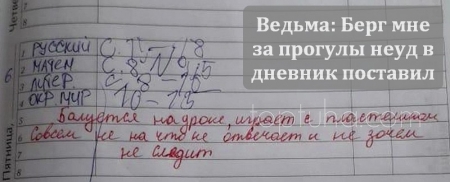 Четве
Ведьма: Берг мне
за прогулы неуд в
дневник поставил
6
1 РУССКИЙ С.
2 МАТЕМ С. 8 № 9,5
3 ЛИТЕР. С. 8 – 16
4 ОКР МИР 10 – 13
5 Балуется на уроке, играет с пластелином
6 Совсем не на что не отвечает и не зачем
7 не следит
8
Пятница,